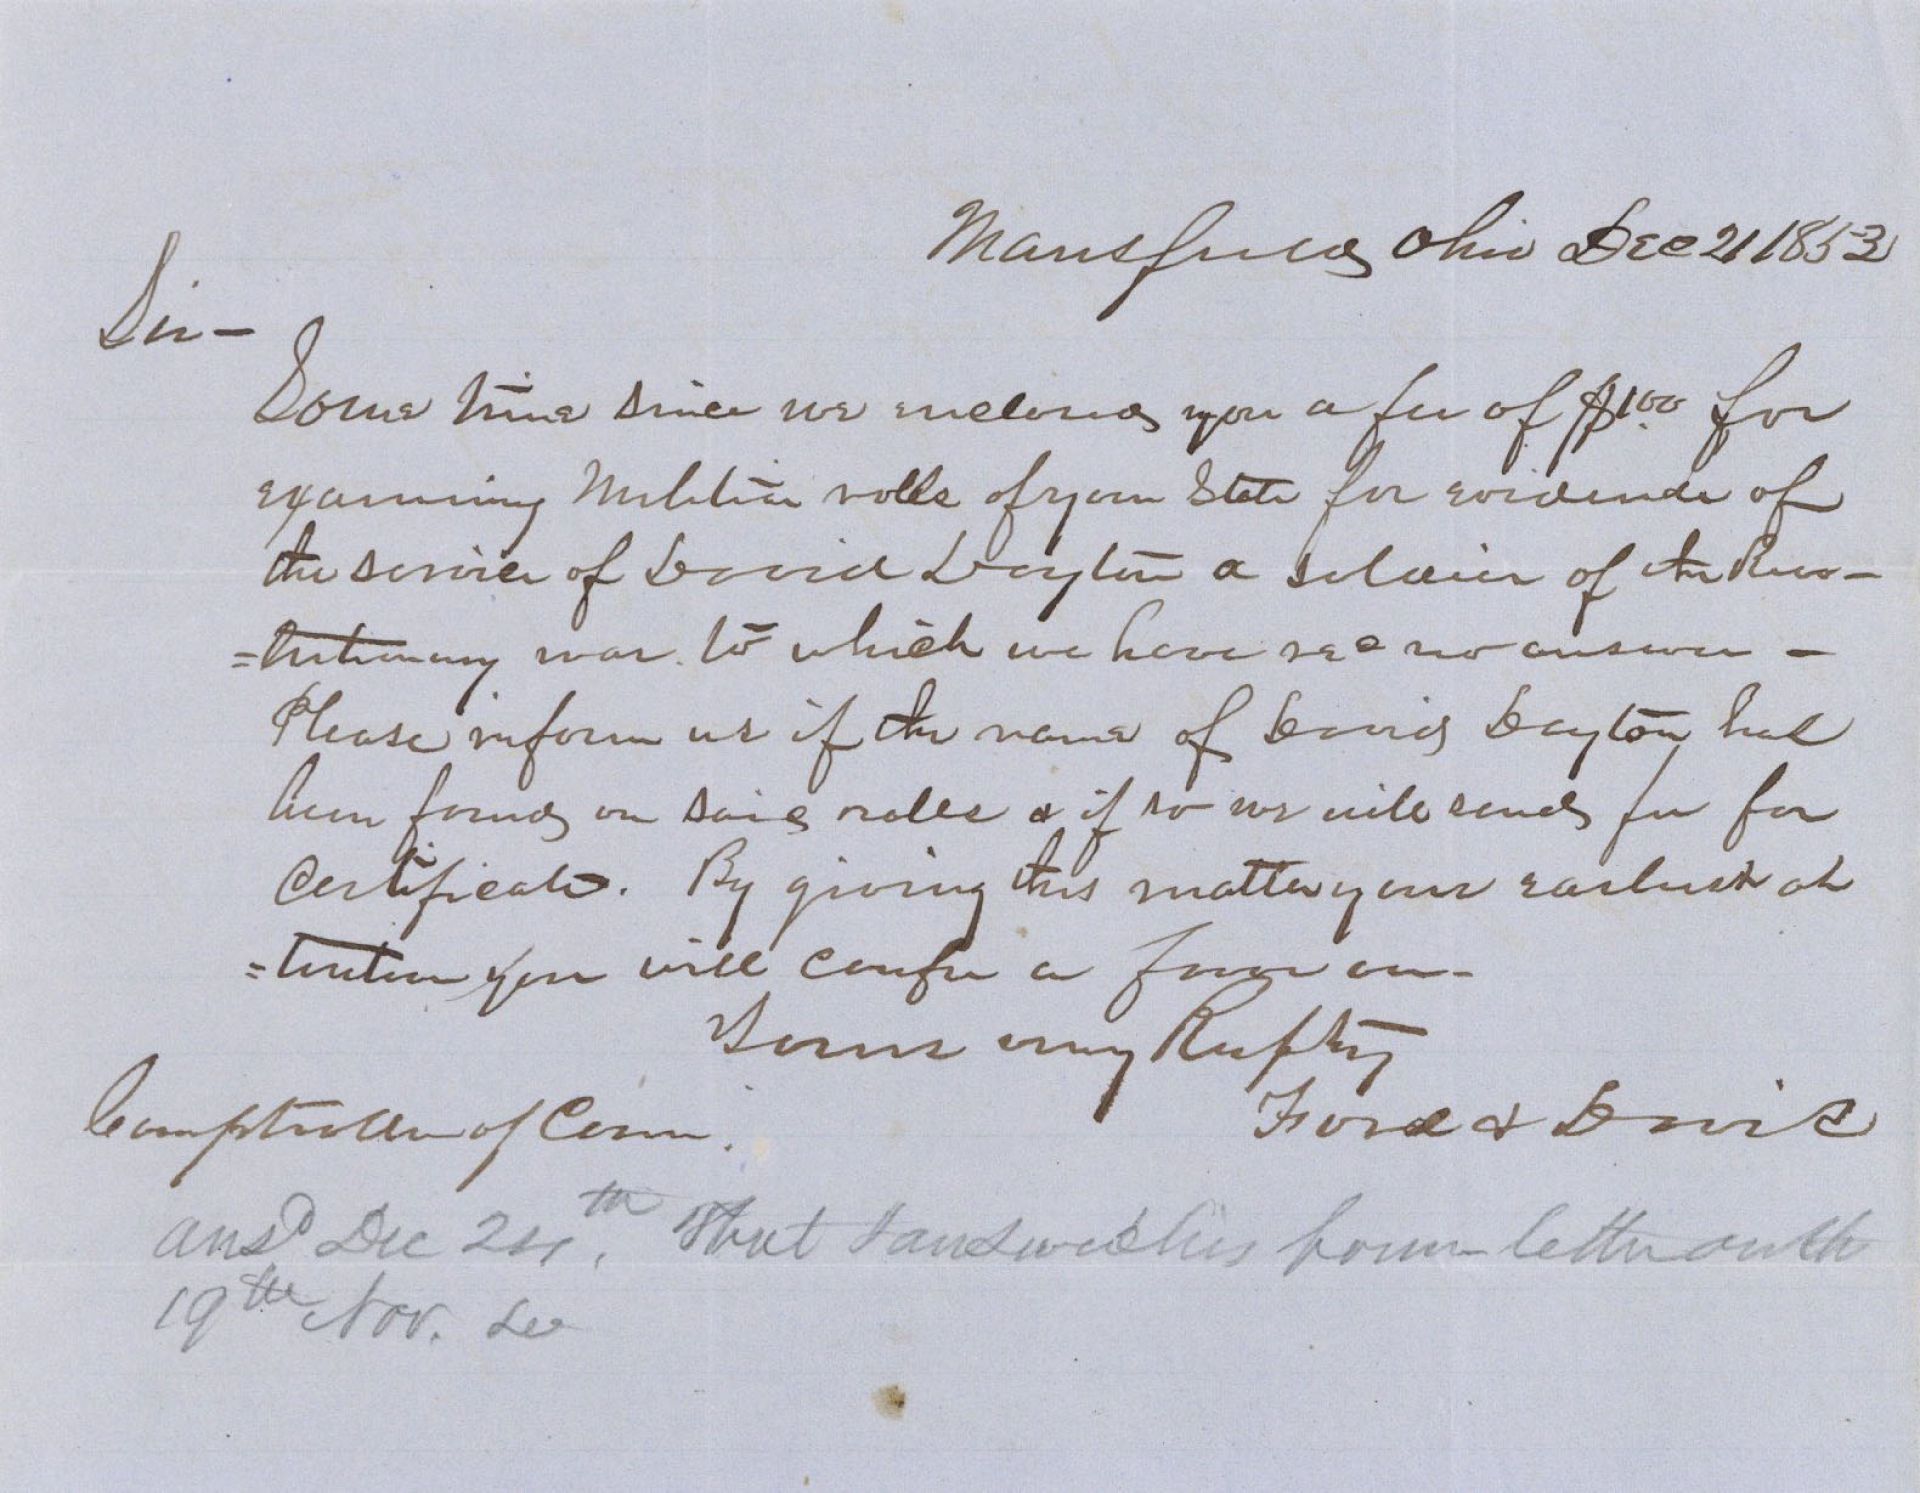 Mansfield Ohio Dec 21 1853
Sir –
Some time since we enclosed you a fee of $1.00 for
examining Militia rolls of your State for evidence of
the service of David Dayton a soldier of the Revo–
=lutionary war. to which we have rec no answer –
Please inform us if the name of David Dayton has
been found on said rolls & if so we will send fee for
certificate. By giving this matter your earliest at
=tention you will confer a favor on–
Yours very Respty
Comptroller of Conn. Ford & Davis
ansd Dec 24th. that I answered his former letter on the
19th Nov.